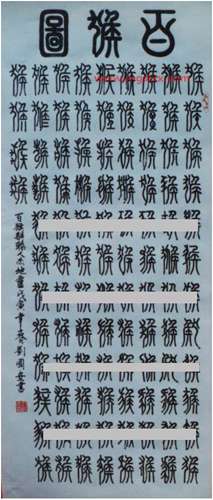 百猴圖
猴猴猴猴猴猴猴猴猴猴猴猴
猴猴猴猴猴猴猴猴猴猴猴猴
猴猴猴猴猴猴猴猴猴猴猴猴
猴猴猴猴猴猴猴猴猴猴猴猴
猴猴猴猴猴猴猴猴猴猴猴猴
猴猴猴猴猴猴猴猴猴猴猴猴
猴猴猴猴猴猴猴猴猴猴猴猴
猴猴猴猴猴猴猴猴猴猴猴猴
猴猴猴猴
百猴 人杰地靈戊寅年 劉國 書